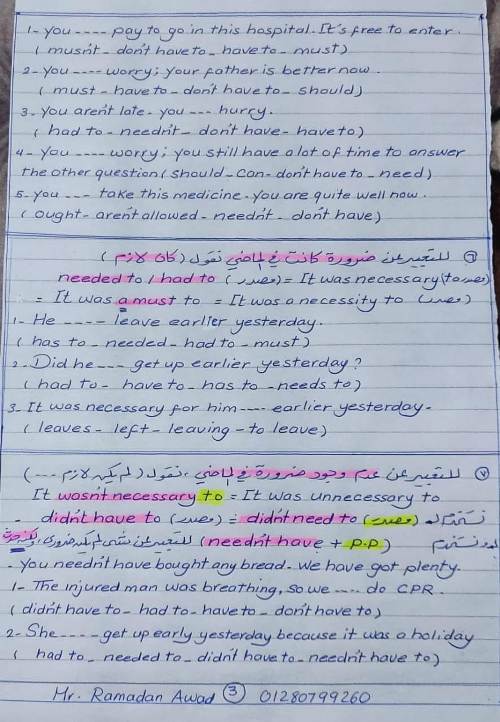 1- you ---- pay to go in this hospital. It's free to enter.
( musn't - don't have to - have to - must)
2- you ---- worry; your father is better now.
( must - have to - don't have to - should)
3- you aren't late - you --- hurry.
( had to - needn't - don't have - have to)
4- you ---- worry; you still have a lot of time to answer
the other question ( should - can - don't have to - need)
5- you --- take this medicine. you are quite well now.
( ought - aren't allowed - needn't - don't have)
٦ للتعبير عن ضرورة كانت في الماضي نقول ( كان لازم )
needed to / had to (مصدر) = It was necessary (to مصدر)
= It was a must to = It was a necessity to (مصدر)
1- He ---- leave earlier yesterday.
( has to - needed - had to - must)
2- Did he --- get up earlier yesterday?
( had to - have to - has to - needs to)
3- It was necessary for him ---- earlier yesterday.
( leaves - left - leaving - to leave)
٧ للتعبير عن عدم وجود ضرورة في الماضي، نقول ( لم يكن لازم ...)
It wasn't necessary to = It was unnecessary to
- didn't have to (مصدر) = didn't need to (مصدر)
(needn't have + p.p) للتعبير عن شئ لم يكن ضروري
- you needn't have bought any bread - we have got plenty.
1- The injured man was breathing, so we .... do CPR.
(didn't have to - had to - have to - don't have to)
2- She ---- get up early yesterday because it was a holiday
( had to - needed to - didn't have to - needn't have to)
Mr. Ramadan Awad 3 01280799260